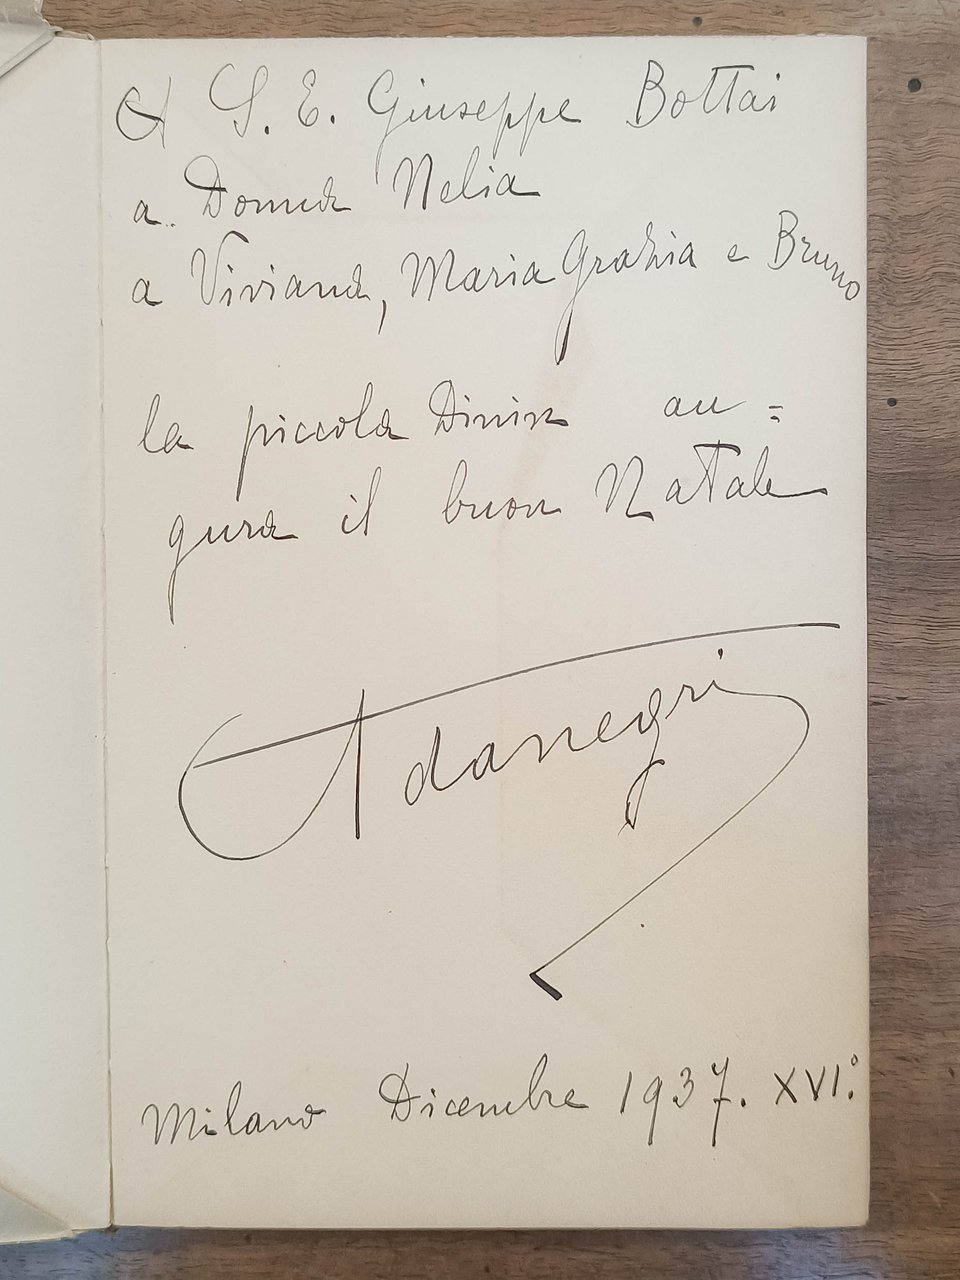 A S. E. Giuseppe Bottai
a Donna Nelia
a Viviana, Maria Grazia e Bruno
la piccola Dinin au=
gura il buon Natale
Adanegri
Milano Dicembre 1937. XVI.°